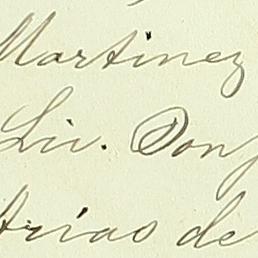 Martinez
Liv. Don
Arias de